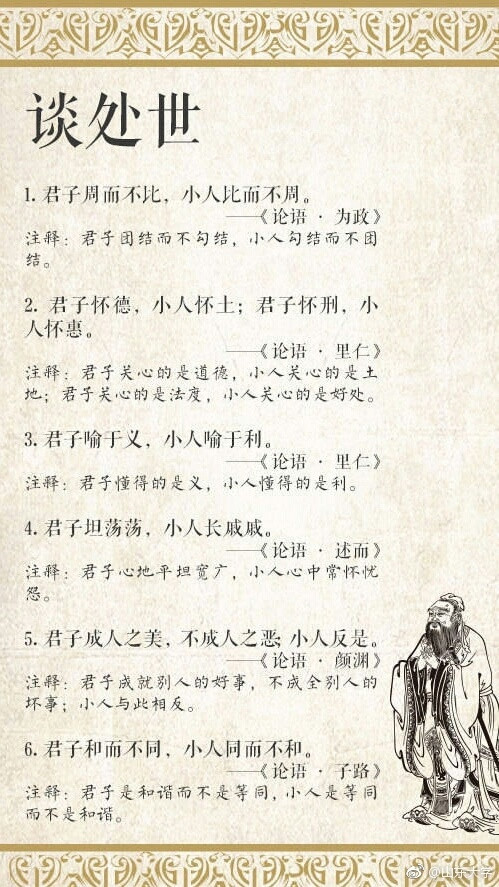 谈处世
1. 君子周而不比，小人比而不周。
——《论语 · 为政》
注释：君子团结而不勾结，小人勾结而不团
结。
2. 君子怀德，小人怀土；君子怀刑，小
人怀惠。
——《论语 · 里仁》
注释：君子关心的是道德，小人关心的是土
地；君子关心的是法度，小人关心的是好处。
3. 君子喻于义，小人喻于利。
——《论语 · 里仁》
注释：君子懂得的是义，小人懂得的是利。
4. 君子坦荡荡，小人长戚戚。
——《论语 · 述而》
注释：君子心地平坦宽广，小人心中常怀忧
怨。
5. 君子成人之美，不成人之恶；小人反是。
——《论语 · 颜渊》
注释：君子成就别人的好事，不成全别人的
坏事；小人与此相反。
6. 君子和而不同，小人同而不和。
——《论语 · 子路》
注释：君子是和谐而不是等同，小人是等同
而不是和谐。
@山东大学